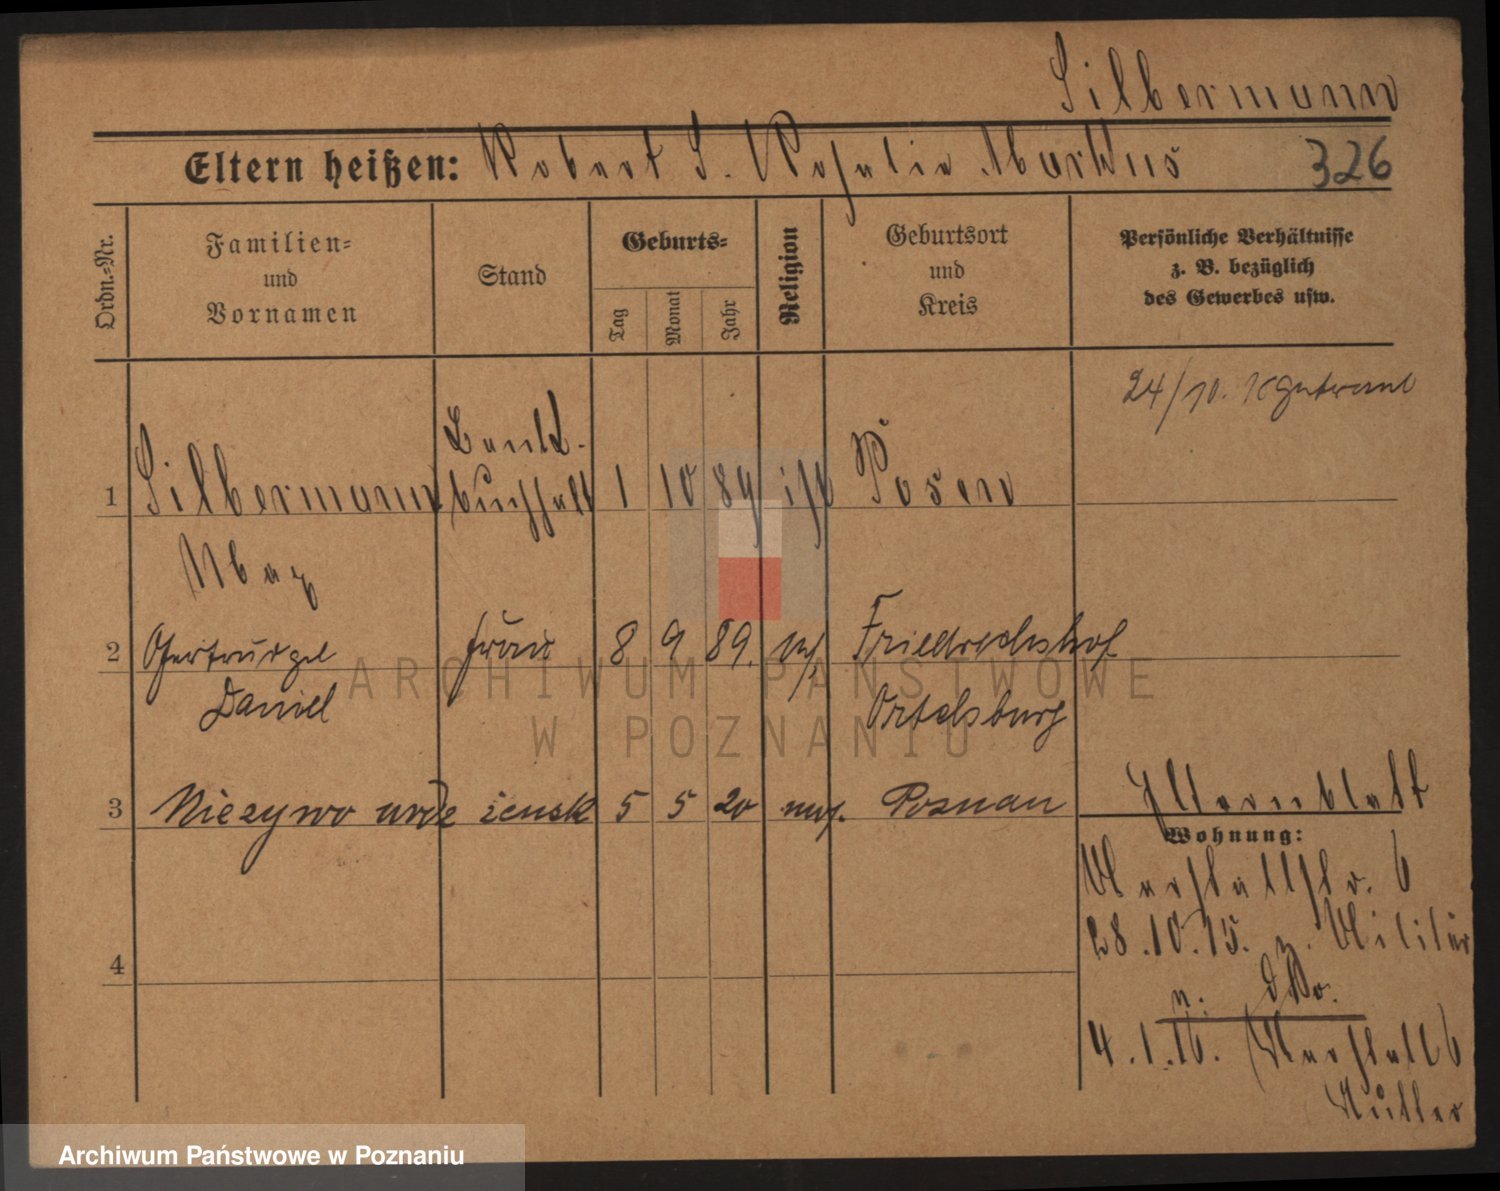 Silbermann
Eltern heißen: Robert S. Rosalie Markus 326
Ordn.=Nr.
Familien=
und
Vornamen
Stand
Geburts=
Tag
Monat
Jahr
Religion
Geburtsort
und
Kreis
Persönliche Verhältnisse
z. B. bezüglich
des Gewerbes usw.
24/10.
Bank-
1 Silbermann buchhalt 1 10 89 isr Posen
Max
2 Gertrud gel Frau 8 9 89. Friedrichshof
Daniel Ortelsburg
3 Niezywo urodz żensk 5 5 20 moj. Poznan
4
Elternblatt
Wohnung:
Marstallstr. 6
28.10.15. z. Militär
n.
4.1.16. Marstall 6
Mutter
ARCHIWUM PAŃSTWOWE
W POZNANIU
Archiwum Państwowe w Poznaniu